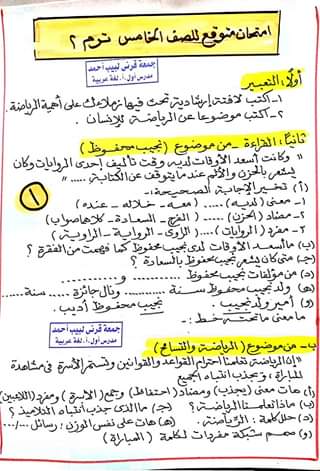 امتحان متوقع للصف الخامس ترم ٢
جمعة قرنى لبيب أحمد
مدرس أول أ. لغة عربية
أولًا: التعبير
١- اكتب لافتة إرشادية تحث فيها زملاءك على أهمية الرياضة.
٢- اكتب موضوعا عن الرياضة للإنسان.
ثانيًا: القراءة - من موضوع (نجيب محفوظ)
" وكانت أسعد الأوقات لديه وقت تأليف إحدى الروايات وكان
يشعر بالحزن والألم عندما يتوقف عن الكتابة ..... "
(أ) تخير الإجابة الصحيحة:-
١- معنى (لديه) ..... (معه - خلاله - عنده)
٢- مضاد (الحزن) ..... (الفرح - السعادة - كلاهما صواب)
٣- مفرد (الروايات) .... (الراوى - الرواية - الراوية)
(ب) ما أسعد الأوقات لدى نجيب محفوظ كما فهمت من الفقرة ؟
(جـ) متى كان يشعر نجيب محفوظ بالسعادة ؟
(د) من مؤلفات نجيب محفوظ .......... و ..........
(هـ) ولد نجيب محفوظ سنة .......... ونال جائزة ..... سنة .....
(و) أمير ولد نجيب. نجيب محفوظ أديب.
ما معنى ما تحته خط:-
جمعة قرنى لبيب أحمد
مدرس أول أ. لغة عربية
ب- من موضوع (الرياضة والتسامح)
" إن الرياضة تعلمنا احترام القواعد والقوانين وتستمر الأسرة في مشاهدة
المباراة، ويجذب انتباه الجميع
(أ) هات معنى (يجذب) ومضاد (احتفاظ) وجمع (الأسرة) ومفرد (اللاعبين)
(ب) ماذا تعلمنا الرياضة؟ (جـ) ما الذى جذب انتباه التلاميذ ؟
(د) حلل كلمة: الرياضة. (هـ) هات على نفس الوزن: رسائل ....،...
(و) صمم شبكة مفردات لكلمة (المباراة)
١